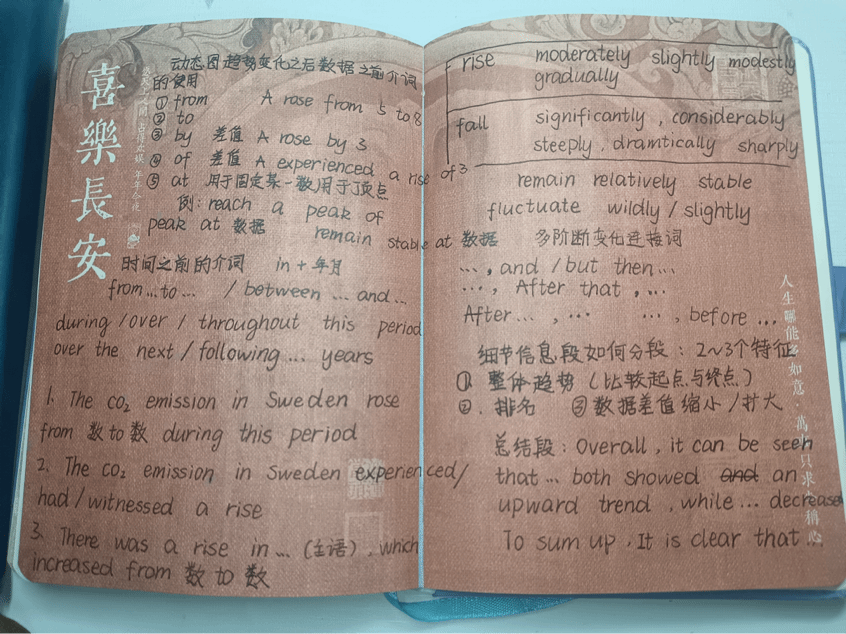 喜樂長安
动态图趋势变化之后数据之前介词
的使用
① from A rose from 5 to 8
② to
③ by 差值 A rose by 3
④ of 差值 A experienced a rise of 3
⑤ at 用于固定某一数)用于顶点
例: reach a peak of
peak at 数据 remain stable at 数据
时间之前的介词 in + 年月
from ... to ... / between ... and ...
during / over / throughout this period
over the next / following ... years
1. The CO₂ emission in Sweden rose
from 数 to 数 during this period
2. The CO₂ emission in Sweden experienced /
had / witnessed a rise
3. There was a rise in ... (主语), which
increased from 数 to 数
rise moderately slightly modestly
gradually
fall significantly, considerably
steeply, dramtically sharply
remain relatively stable
fluctuate wildly / slightly
多阶断变化连接词
..., and / but then ...
..., After that, ...
After ..., ... ..., before ...
细节信息段如何分段: 2~3个特征
①. 整体趋势 (比较起点与终点)
②. 排名 ③ 数据差值缩小 / 扩大
总结段: Overall, it can be seen
that ... both showed and an
upward trend, while ... decreased
To sum up, It is clear that ...
人生哪能多如意,萬事只求半稱心